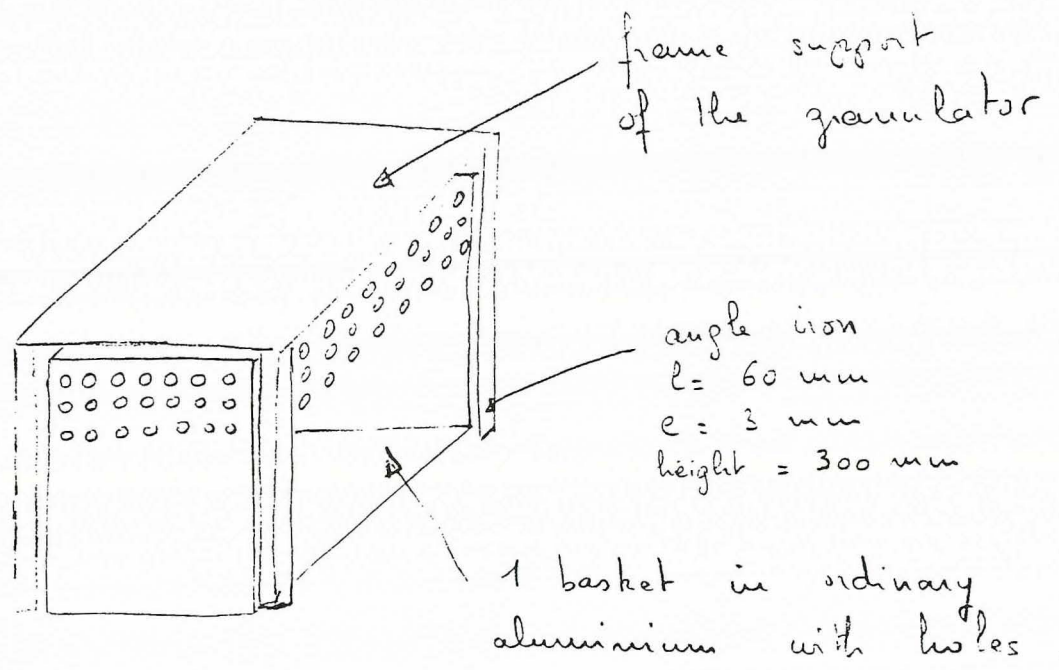 frame support
of the granulator
angle iron
l = 60 mm
e = 3 mm
height = 300 mm
1 basket in ordinary
aluminium with holes